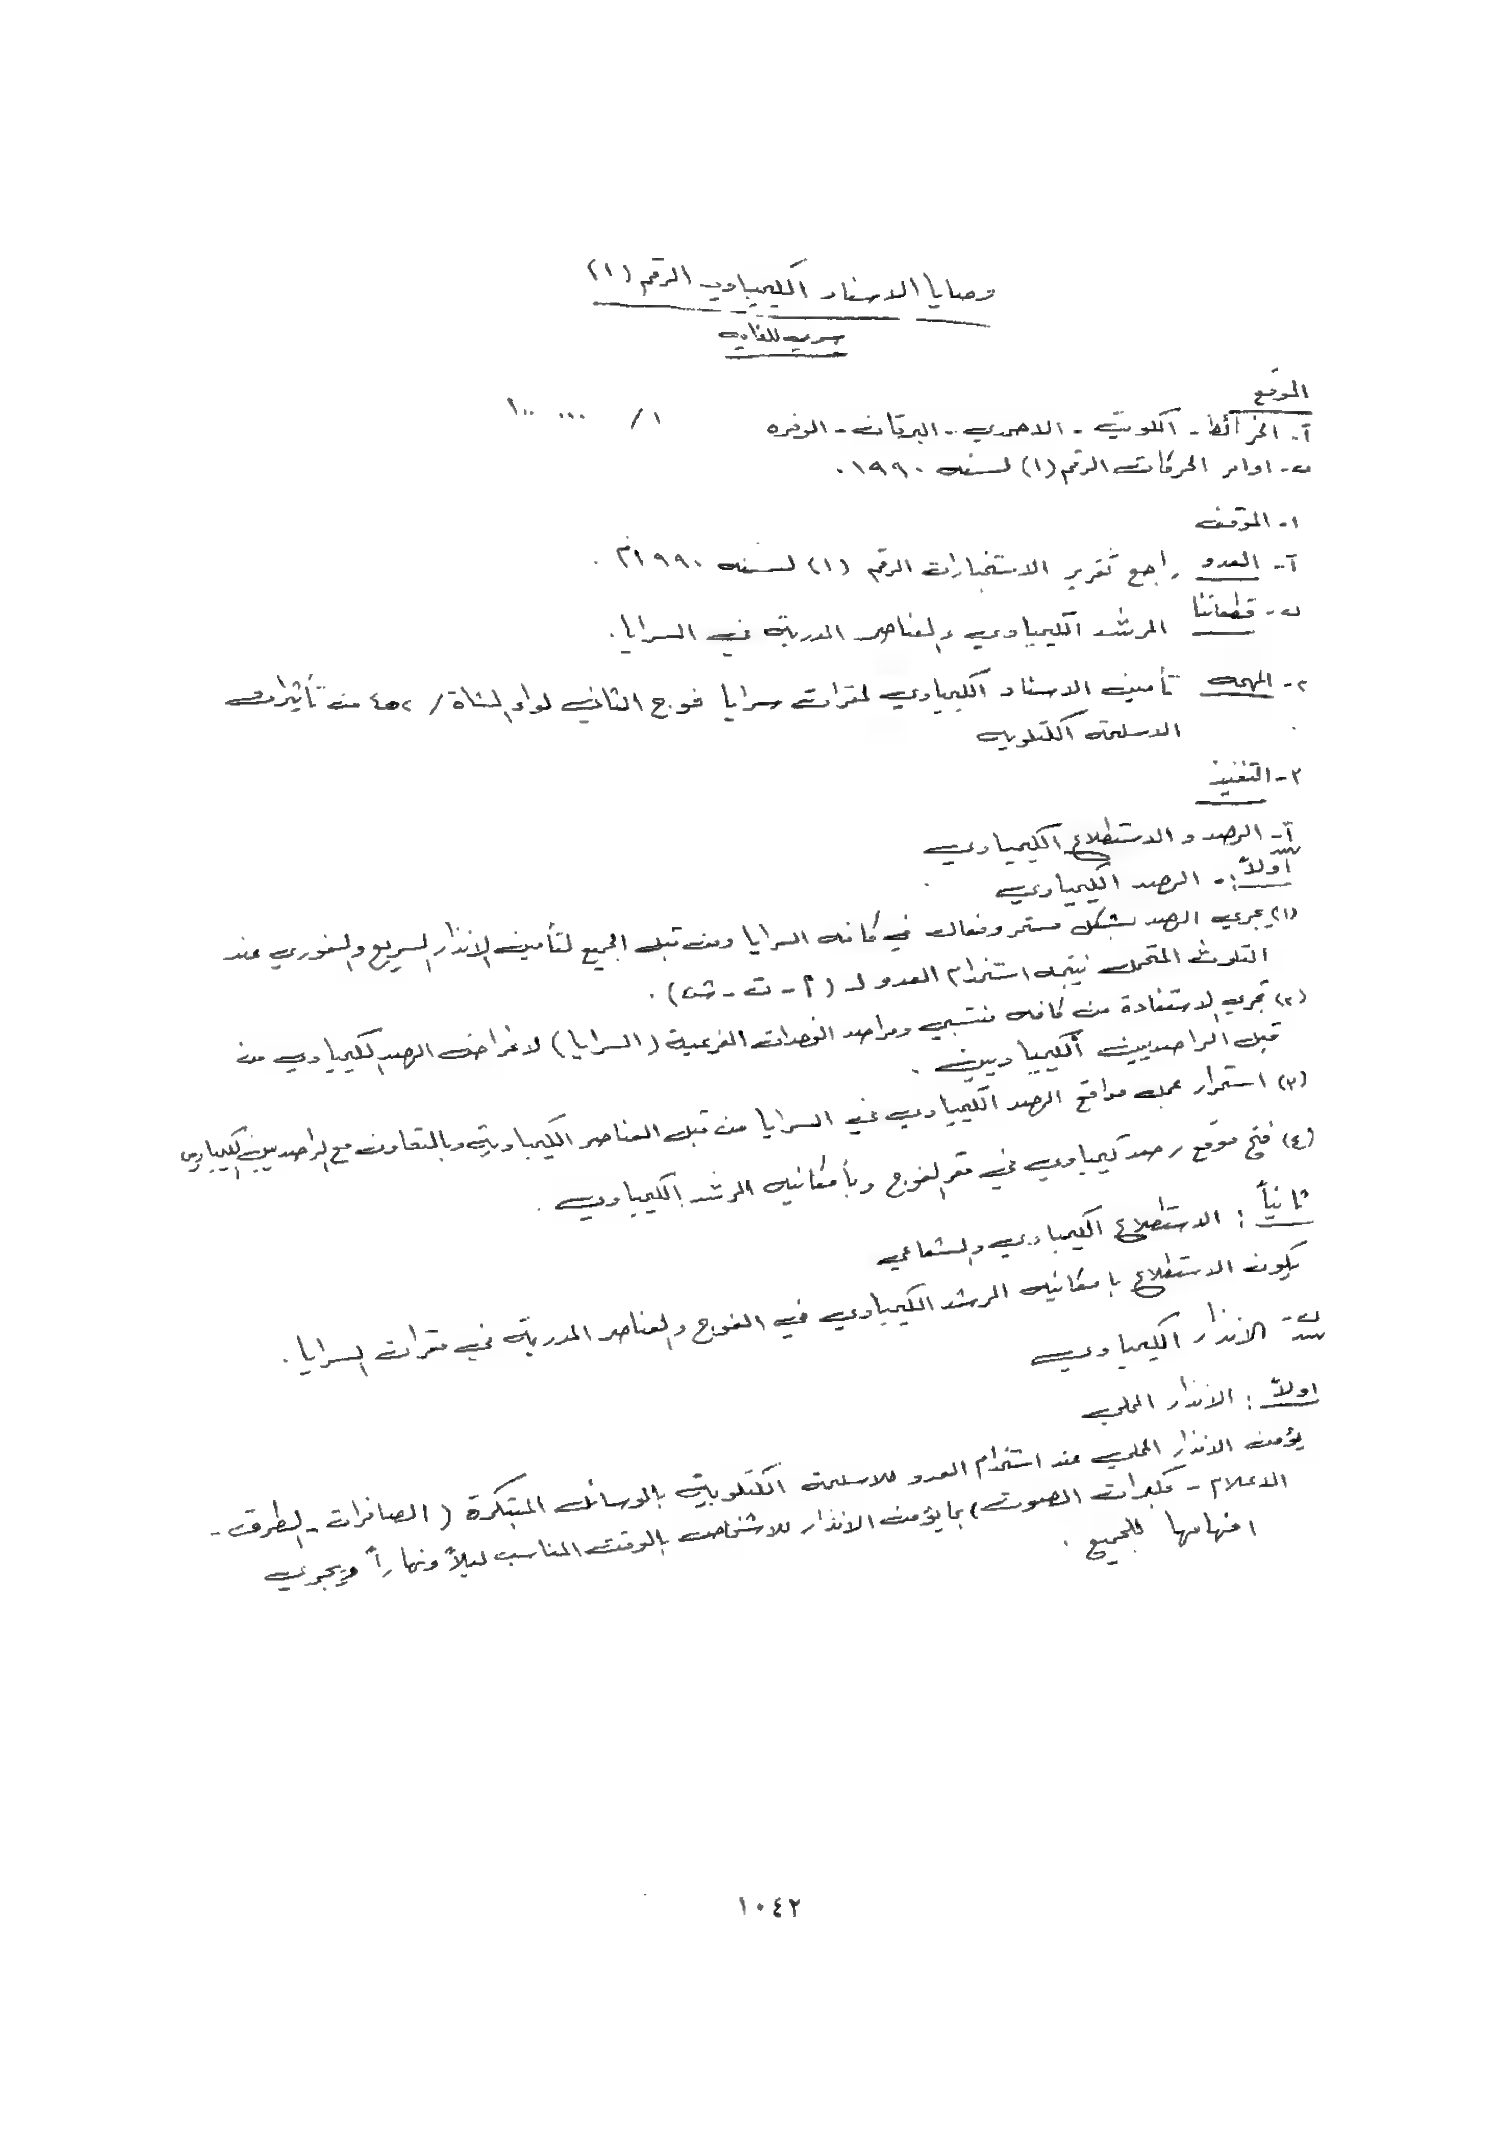 وصايا الاسناد الكيمياوي الرقم (١)
سري للغاية
الموقع
آ- الخرائط - الكويت - الاحمدي - البرقان - الوفره ١/ ١٠٠ ٠٠٠
ب- اوامر الحركات الرقم (١) لسنه ١٩٩٠ .
١- الموقف
آ- العدو راجع تقرير الاستخبارات الرقم (١) لسنه ١٩٩٠م .
ب- قطعاتنا المرشد الكيمياوي والعناصر المدربة في السرايا.
٢- المهمه تأمين الاسناد الكيمياوي لمقرات سرايا فوج الثاني لواء المشاة / ٤٥٢ من تأثيرات
الاسلحة الكتلويه
٣- التنفيذ
آ- الرصد والاستطلاع الكيمياوي
اولاً :- الرصد الكيمياوي
(١) يجري الرصد بشكل مستمر وفعال في كافه السرايا ومن قبل الجميع لتأمين الانذار السريع والفوري عند
التلوث المتحمل نتيجه استخدام العدو لـ (أ - ت - ش) .
(٢) تجري الاستفادة من كافه منتسبي ومراصد الوحدات الفرعية (السرايا) لاغراض الرصد الكيمياوي من
قبل الراصديين الكيمياويين .
(٣) استمرار عمل مواقع الرصد الكيمياوي في السرايا من قبل العناصر الكيمياوية وبالتعاون مع الراصديين الكيمياوي
(٤) فتح موقع رصد كيمياوي في مقر الفوج وبأمكانيه المرشد الكيمياوي .
ثانياً : الاستطلاع الكيمياوي والشعاعي
يكون الاستطلاع بامكانيه المرشد الكيمياوي في الفوج والعناصر المدربة في مقرات السرايا .
ب- الانذار الكيمياوي
اولاً : الانذار المحلي
يؤمن الانذار المحلي عند استخدام العدو للاسلحة الكتلوية بالوسائل المبتكرة ( الصافرات - الطرق -
الاعلام - مكبرات الصوت) بما يؤمن الانذار للاشخاص بالوقت المناسب ليلاً ونهاراً ويجري
افهامها للجميع .
١٠٤٢